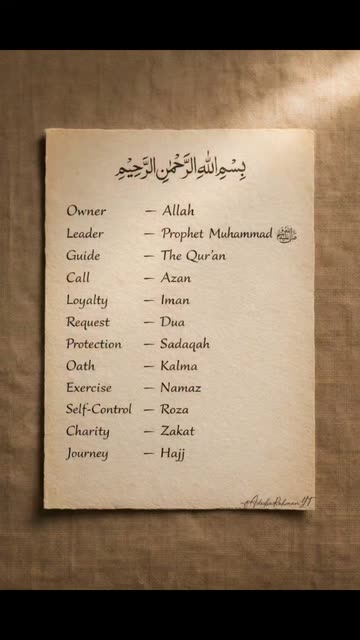 بِسْمِ اللهِ الرَّحْمٰنِ الرَّحِيْمِ
Owner — Allah
Leader — Prophet Muhammad ﷺ
Guide — The Qur'an
Call — Azan
Loyalty — Iman
Request — Dua
Protection — Sadaqah
Oath — Kalma
Exercise — Namaz
Self-Control — Roza
Charity — Zakat
Journey — Hajj